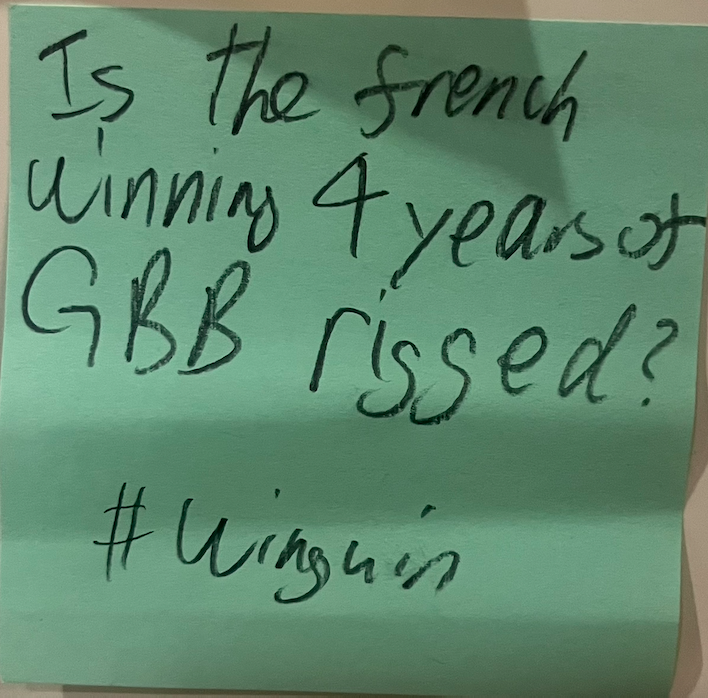 Is the french
winning 4 years of
GBB rigged?
#Wingwin